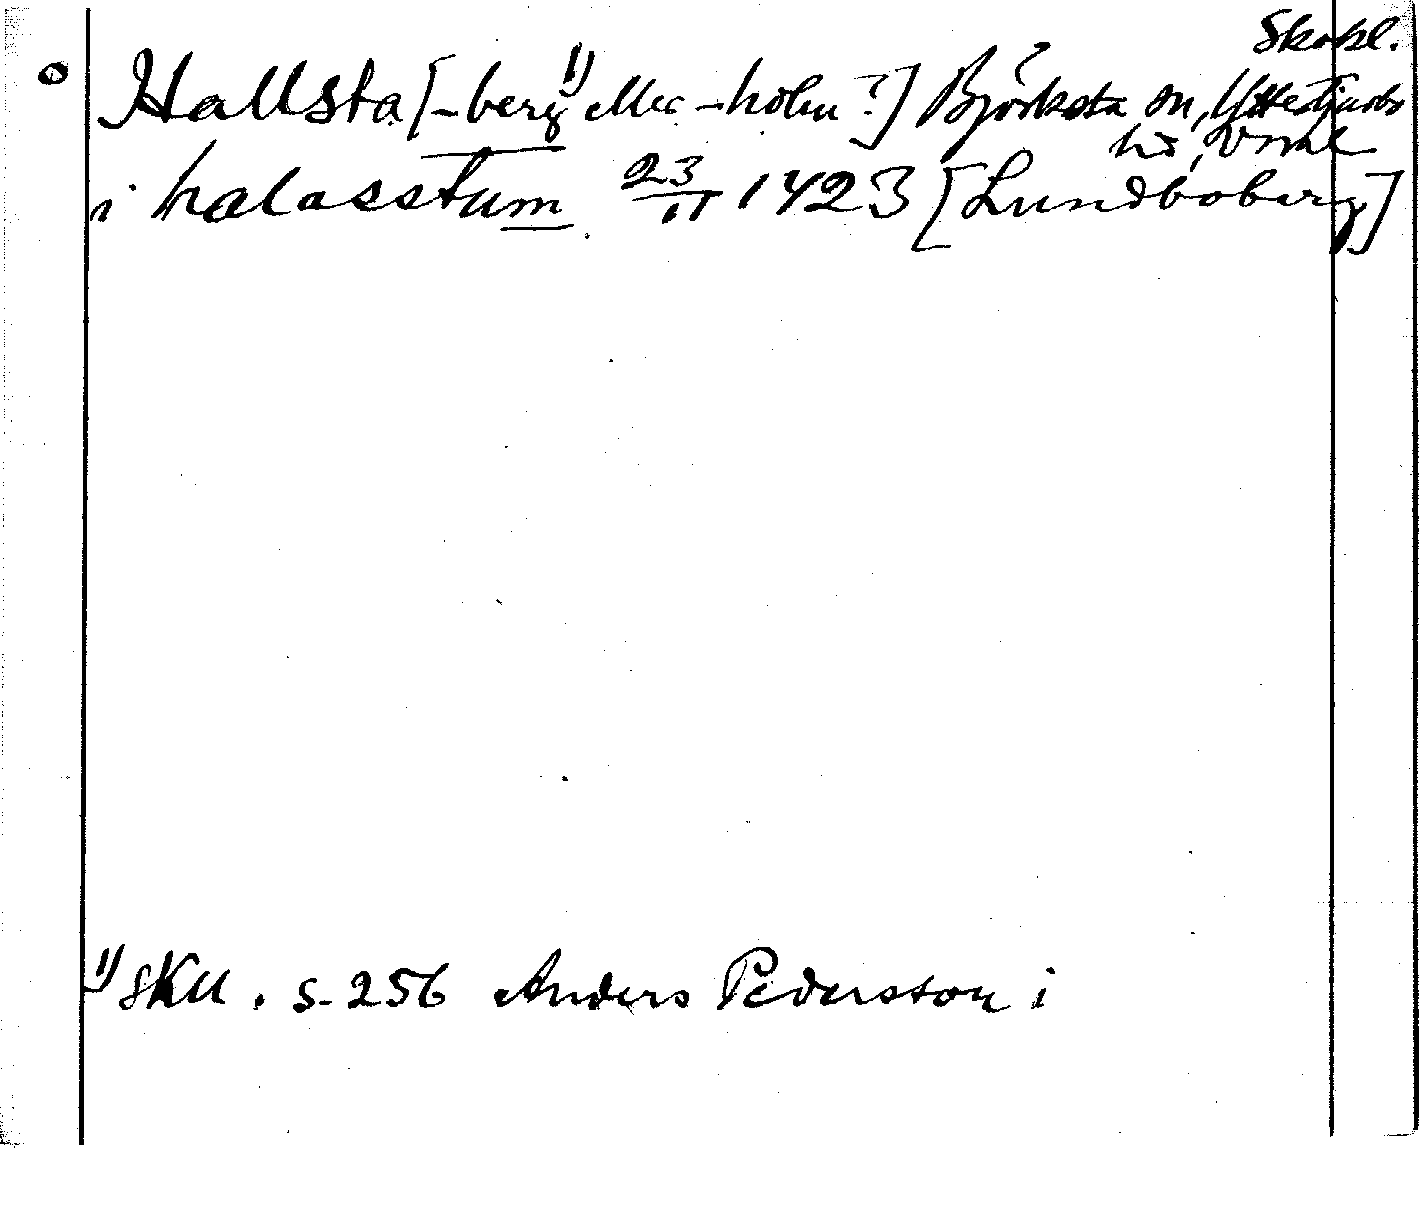 Skokl.
Hallsta [-berg¹⁾ eller -holm?] Björksta sn, Yttertjurbo
hd, Vstml
i halasstum 23/11 1423 [Lundboberg]
¹⁾ SKU. s. 256 Anders Pedersson i